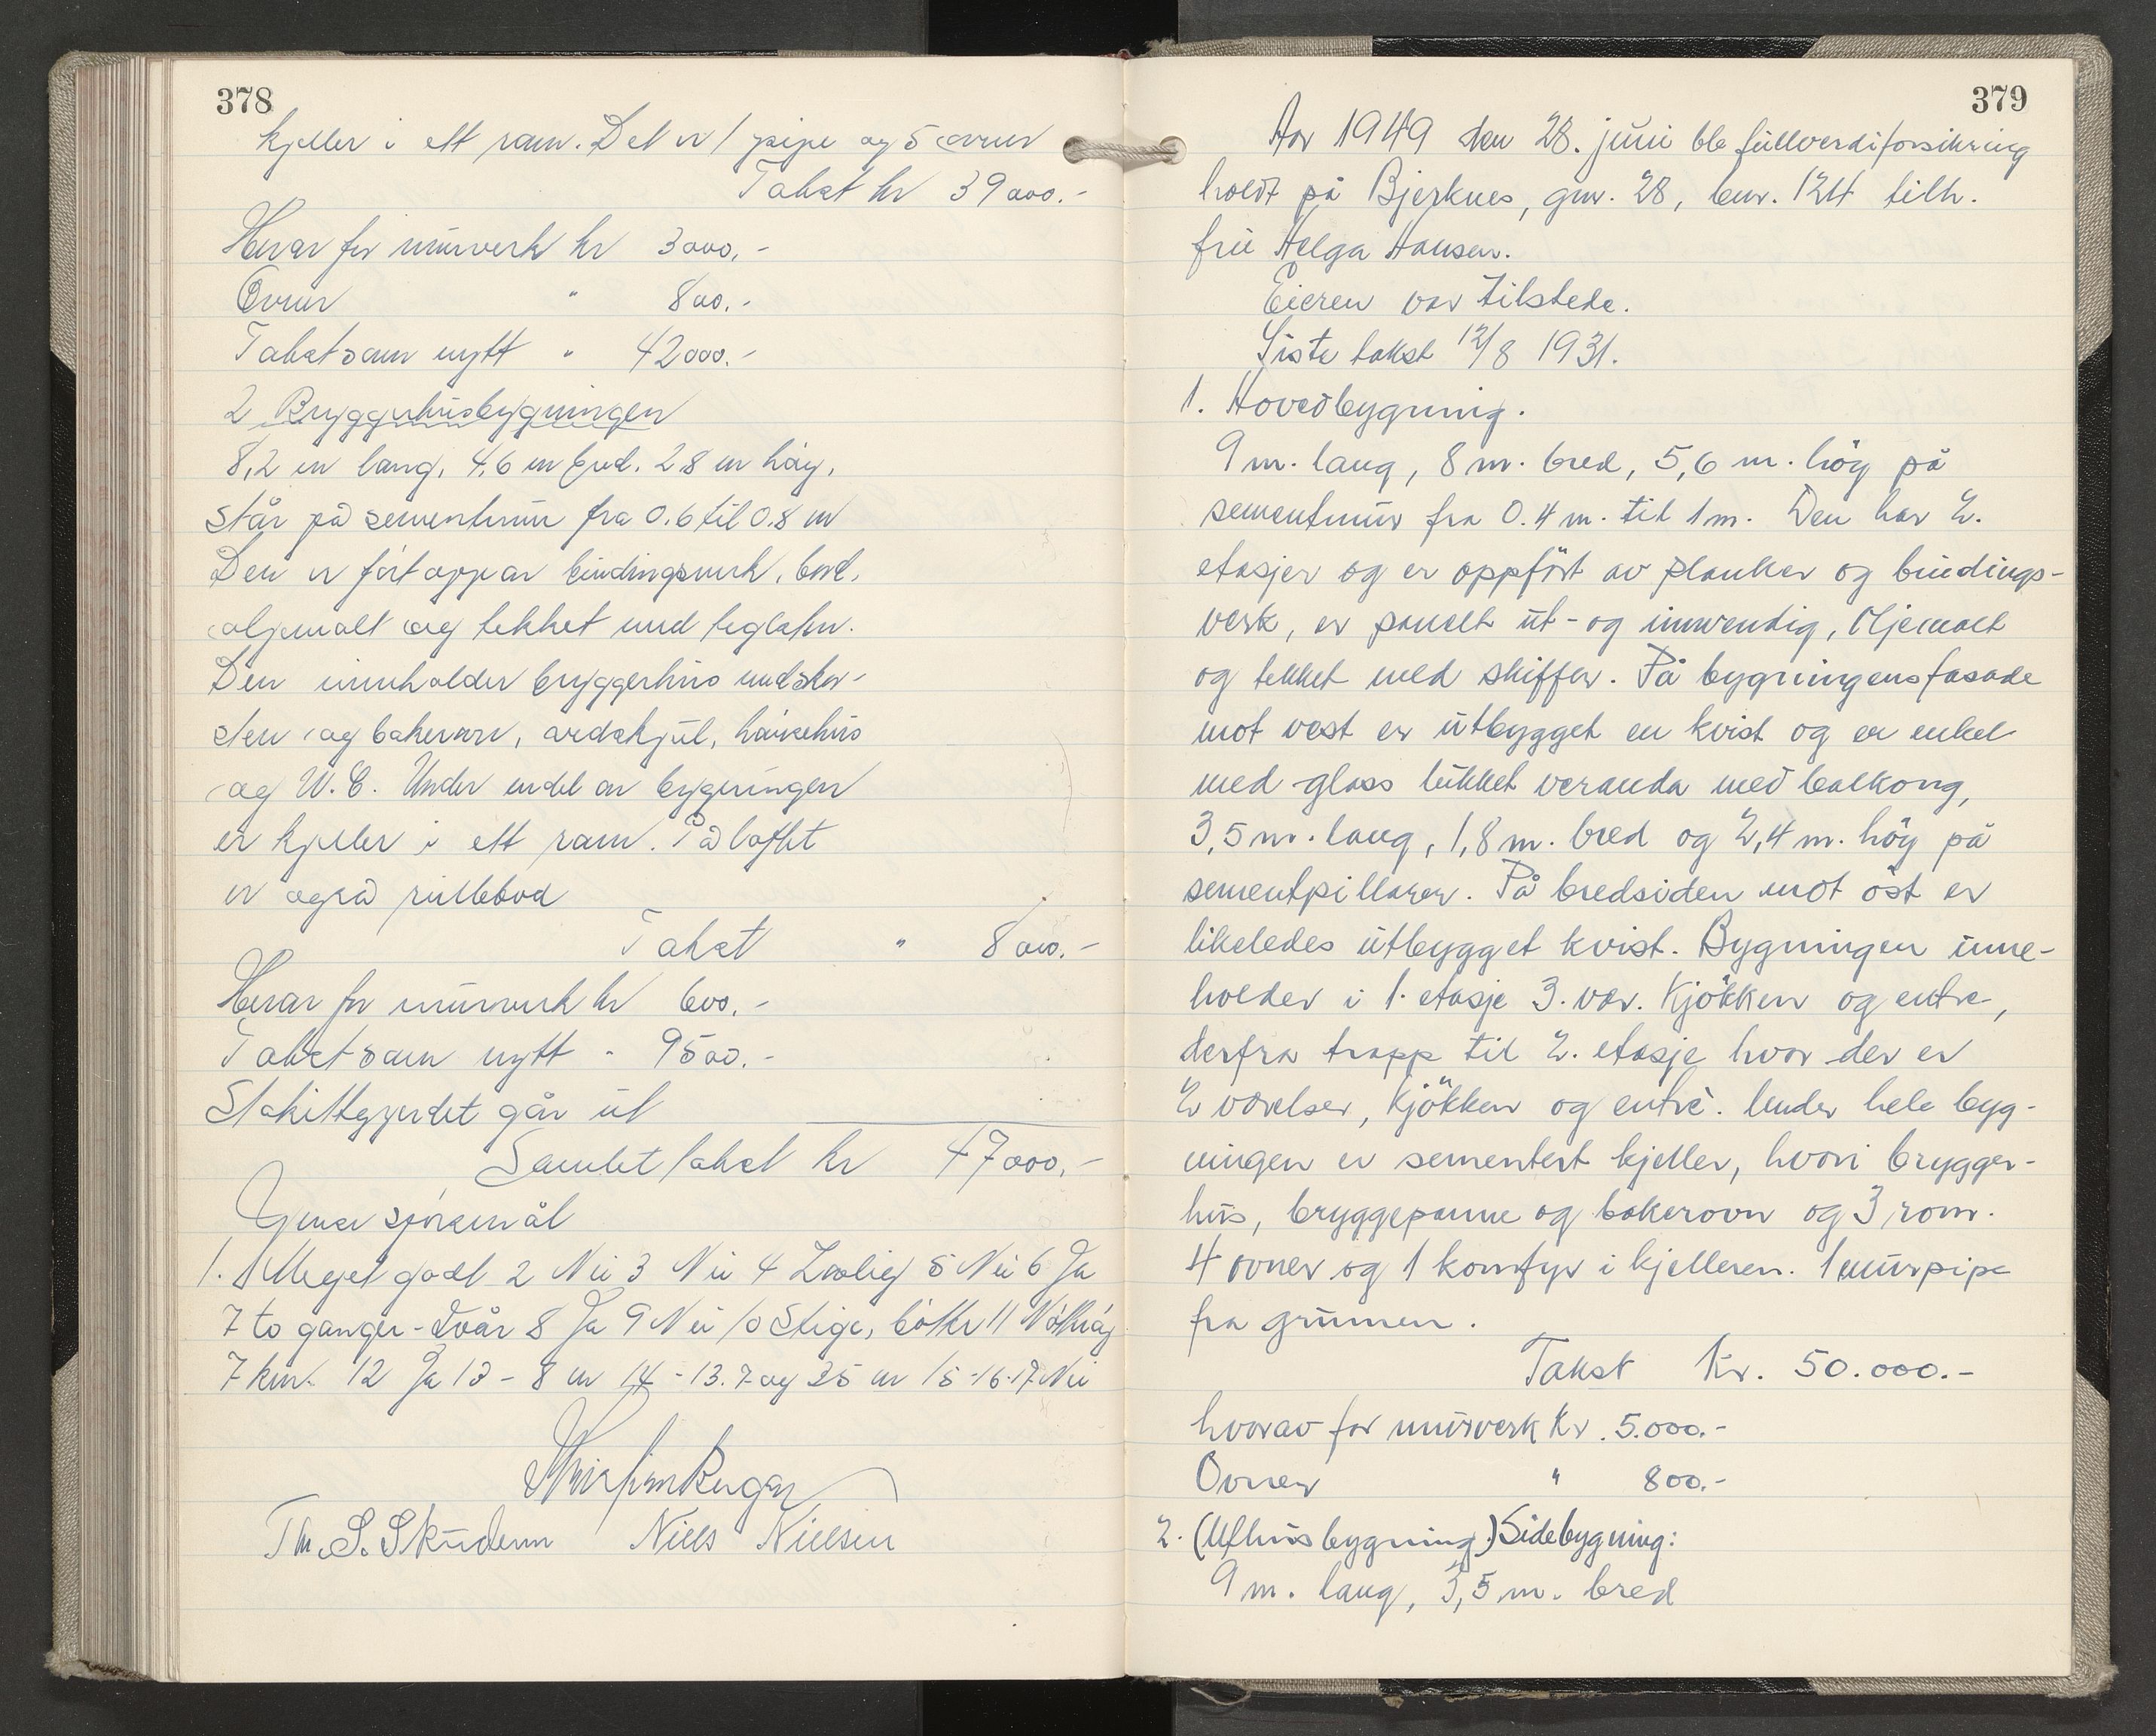 378
kjeller i ett rom. Det er 1 pipe og 5 ovner
Takst kr 39000.-
Herav for murverk kr 3000,-
Ovner " 800.-
Takst som nytt " 42000.-
2 Bryggerhusbygningen
8,2 m lang, 4,6 m bred. 2.8 m høy,
står på sementmur fra 0.6 til 0.8 m
Den er ført opp av bindingsverk, bord,
oljemalt og tekket med teglsten.
Den inneholder bryggerhus med skor-
sten og bakerovn, vedskjul, hønsehus
og W.C. Under endel av bygningen
er kjeller i ett rom. På loftet
er også rullebod
Takst " 8000.-
Herav for murverk kr 600,-
Takst som nytt " 9500.-
Stakittgjerdet går ut
Samlet takst kr 47000,-
Gense spørsmål
1. Meget godt 2 Nei 3 Nei 4 Lovlig 5 Nei 6 Ja
7 to ganger - årlig 8 Ja 9 Nei 10 Stige, bøtter 11 Nøtterøy
7 km. 12 Ja 13 - 8 m 14 - 13.7 og 25 m 15-16-17 Nei
Th. S. Skudem Niels Nielsen
379
Aar 1949 den 28. juni ble fullverdiforsikring
holdt på Bjerknes, gnr. 28, bnr. 124 tilh.
fru Helga Hansen.
Eieren var tilstede.
Siste takst 12/8 1931.
1. Hovedbygning.
9 m. lang, 8 m. bred, 5,6 m. hög på
sementmur fra 0.4 m. til 1 m. Den har 2.
etasjer og er oppfört av planker og bindings-
verk, er panelt ut- og innvendig, Oljemalt
og tekket med skiffer. På bygningens fasade
mot vest er utbygget en kvist og en enkel
med glass lukket veranda med balkong,
3,5 m. lang, 1,8 m. bred og 2,4 m. hög på
sementpillarer. På bredsiden mot öst er
likeledes utbygget kvist. Bygningen inne-
holder i 1. etasje 3. vær. Kjökken og entre,
derfra trapp til 2. etasje hvor der er
2 værelser, Kjökken og entré. Under hele byg-
ningen er sementert kjeller, hvori brygger-
hus, bryggepanne og bakerovn og 3 rom.
4 ovner og 1 komfyr i kjelleren. 1 murpipe
fra grunnen.
Takst Kr. 50.000.-
hvorav for murverk Kr. 5.000.-
Ovner " 800.-
2. (Uthusbygning.) Sidebygning:
9 m. lang, 3,5 m. bred